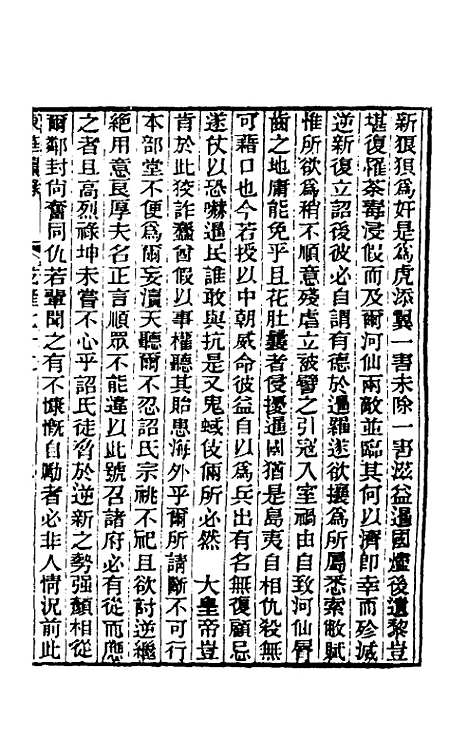 新狠狽爲奸是爲虎添翼一害未除一害滋益暹國燼後遺黎豈
堪復罹荼毒浸假而及爾河仙兩敵並臨其何以濟卽幸而殄滅
逆新復立詔後彼必自謂有德於暹羅遂欲攘爲所屬悉索敝賦
惟所欲爲稍不順意殘虐立被譬之引寇入室禍由自致河仙脣
齒之地庸能免乎且花肚䙝者侵擾暹國猶是島夷自相仇殺無
可藉口也今若授以中朝威命彼益自以爲兵出有名無復顧忌
遂仗以恐嚇暹民誰敢與抗是又鬼蜮伎倆所必然 大皇帝豈
肯於此狡詐蠻酋假以事權聽其貽患海外乎爾所請斷不可行
本部堂不便爲爾妄瀆天聽爾不忍詔氏宗祧不祀且欲討逆繼
絶用意良厚夫名正言順眾不能違以此號召諸府必有從而應
之者且高烈祿坤未嘗不心乎詔氏徒脅於逆新之勢强顏相從
爾鄰封尙奮同仇若輩聞之有不慷慨自勵者必非人情況前此